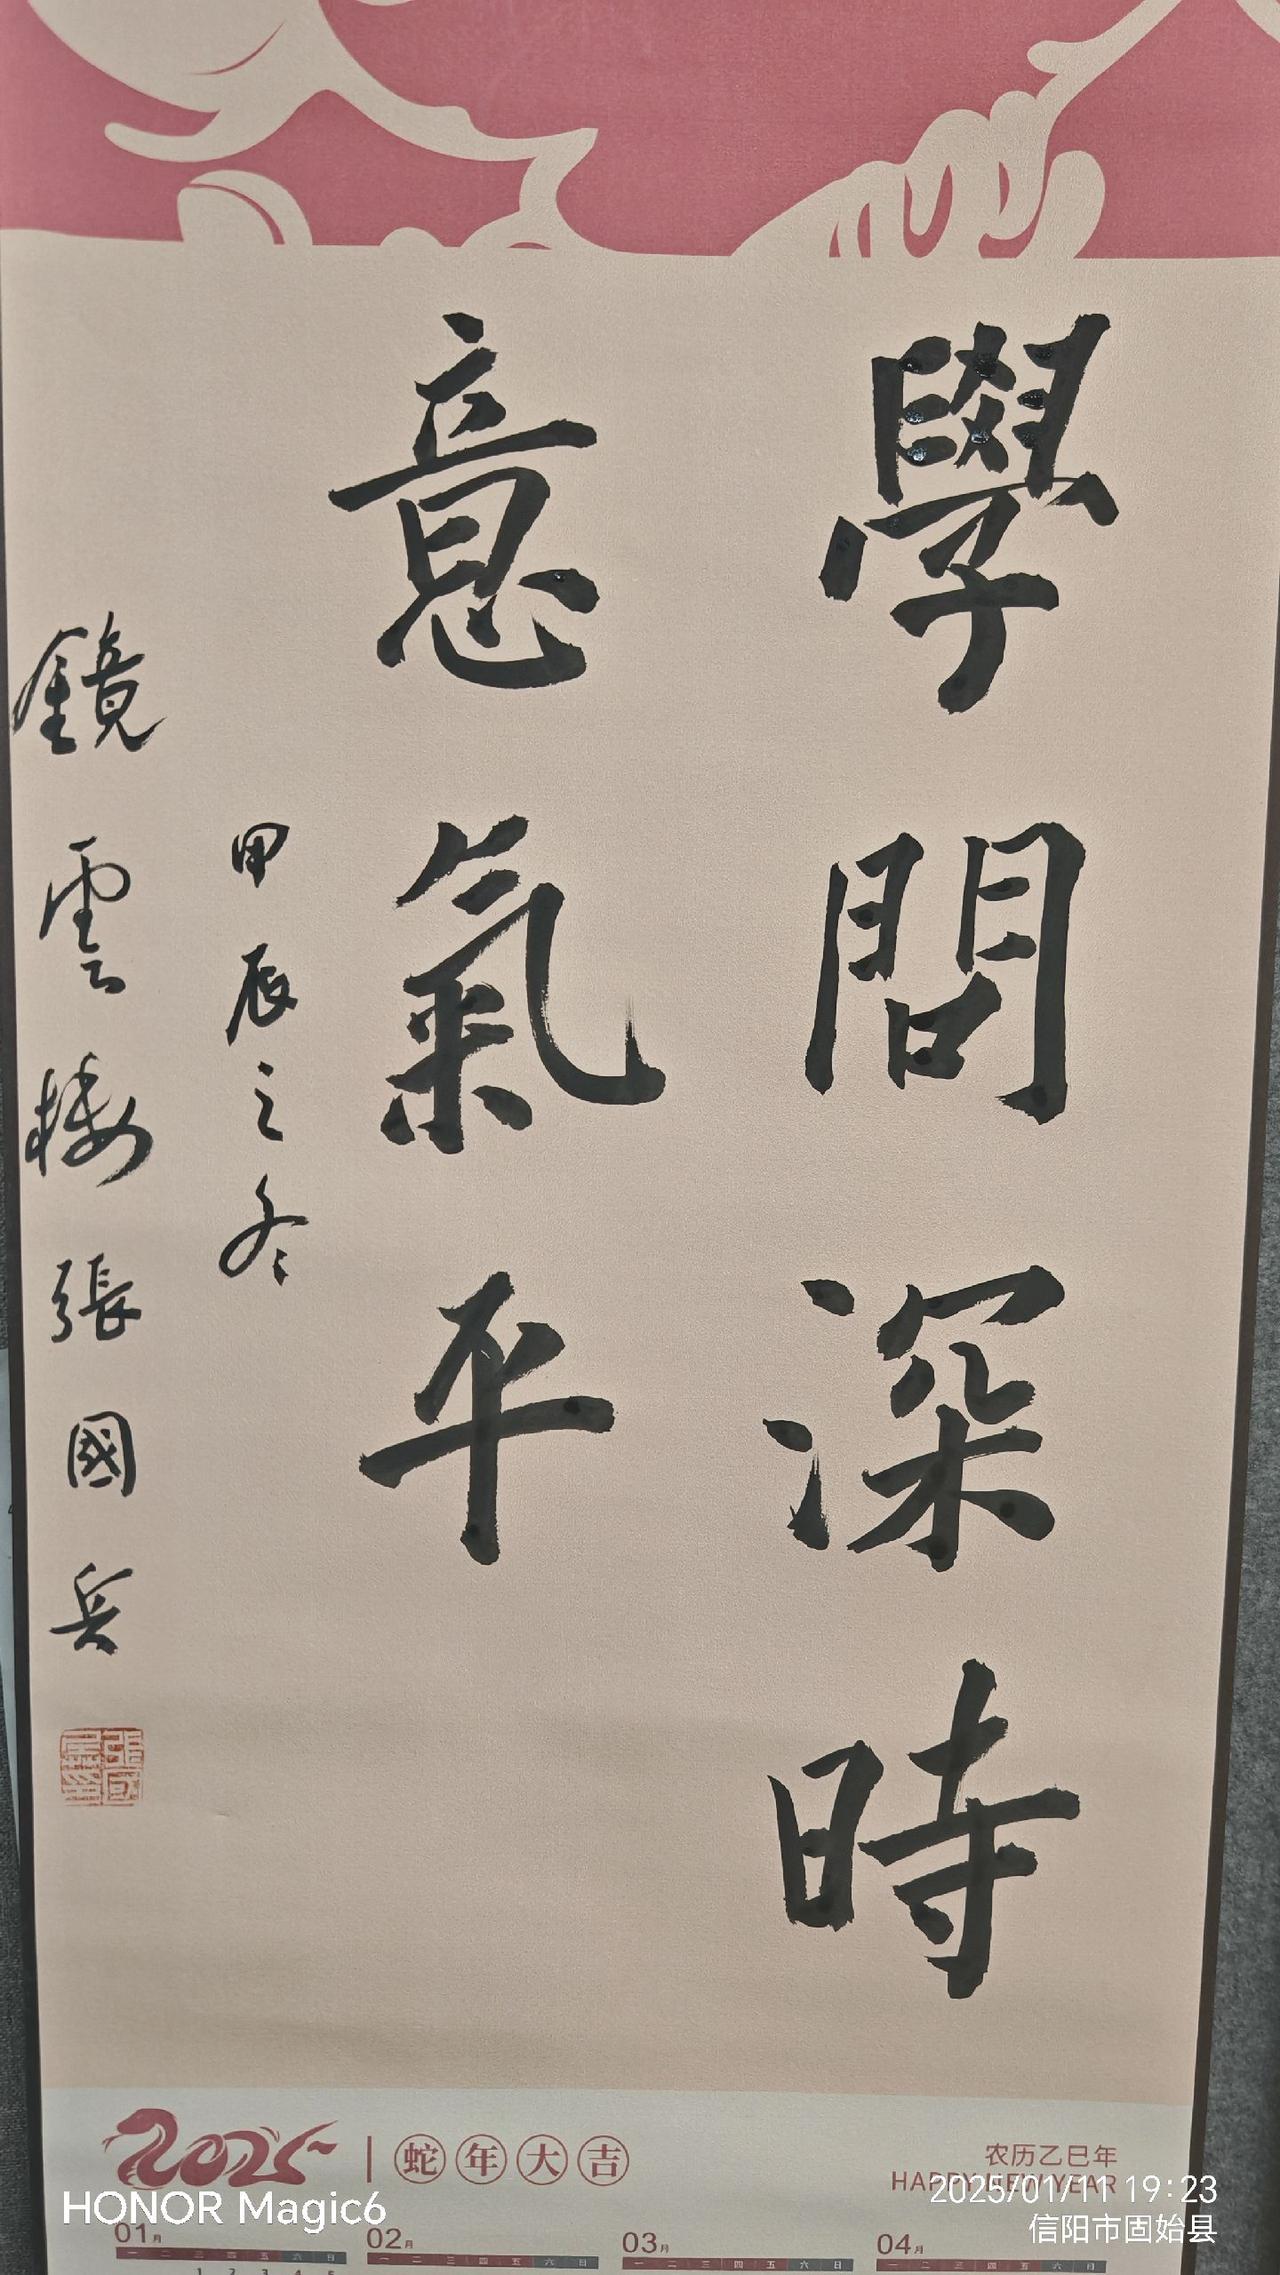 學問深時
意氣平
甲辰之冬
鏡雲樓張國兵
2025 蛇年大吉
农历乙巳年
HAPPY NEW YEAR
HONOR Magic6
2025/01/11 19:23
信阳市固始县
01月 02月 03月 04月
一 二 三 四 五 六 日 一 二 三 四 五 六 日 一 二 三 四 五 六 日 一 二 三 四 五 六 日
1 2 3 4 5